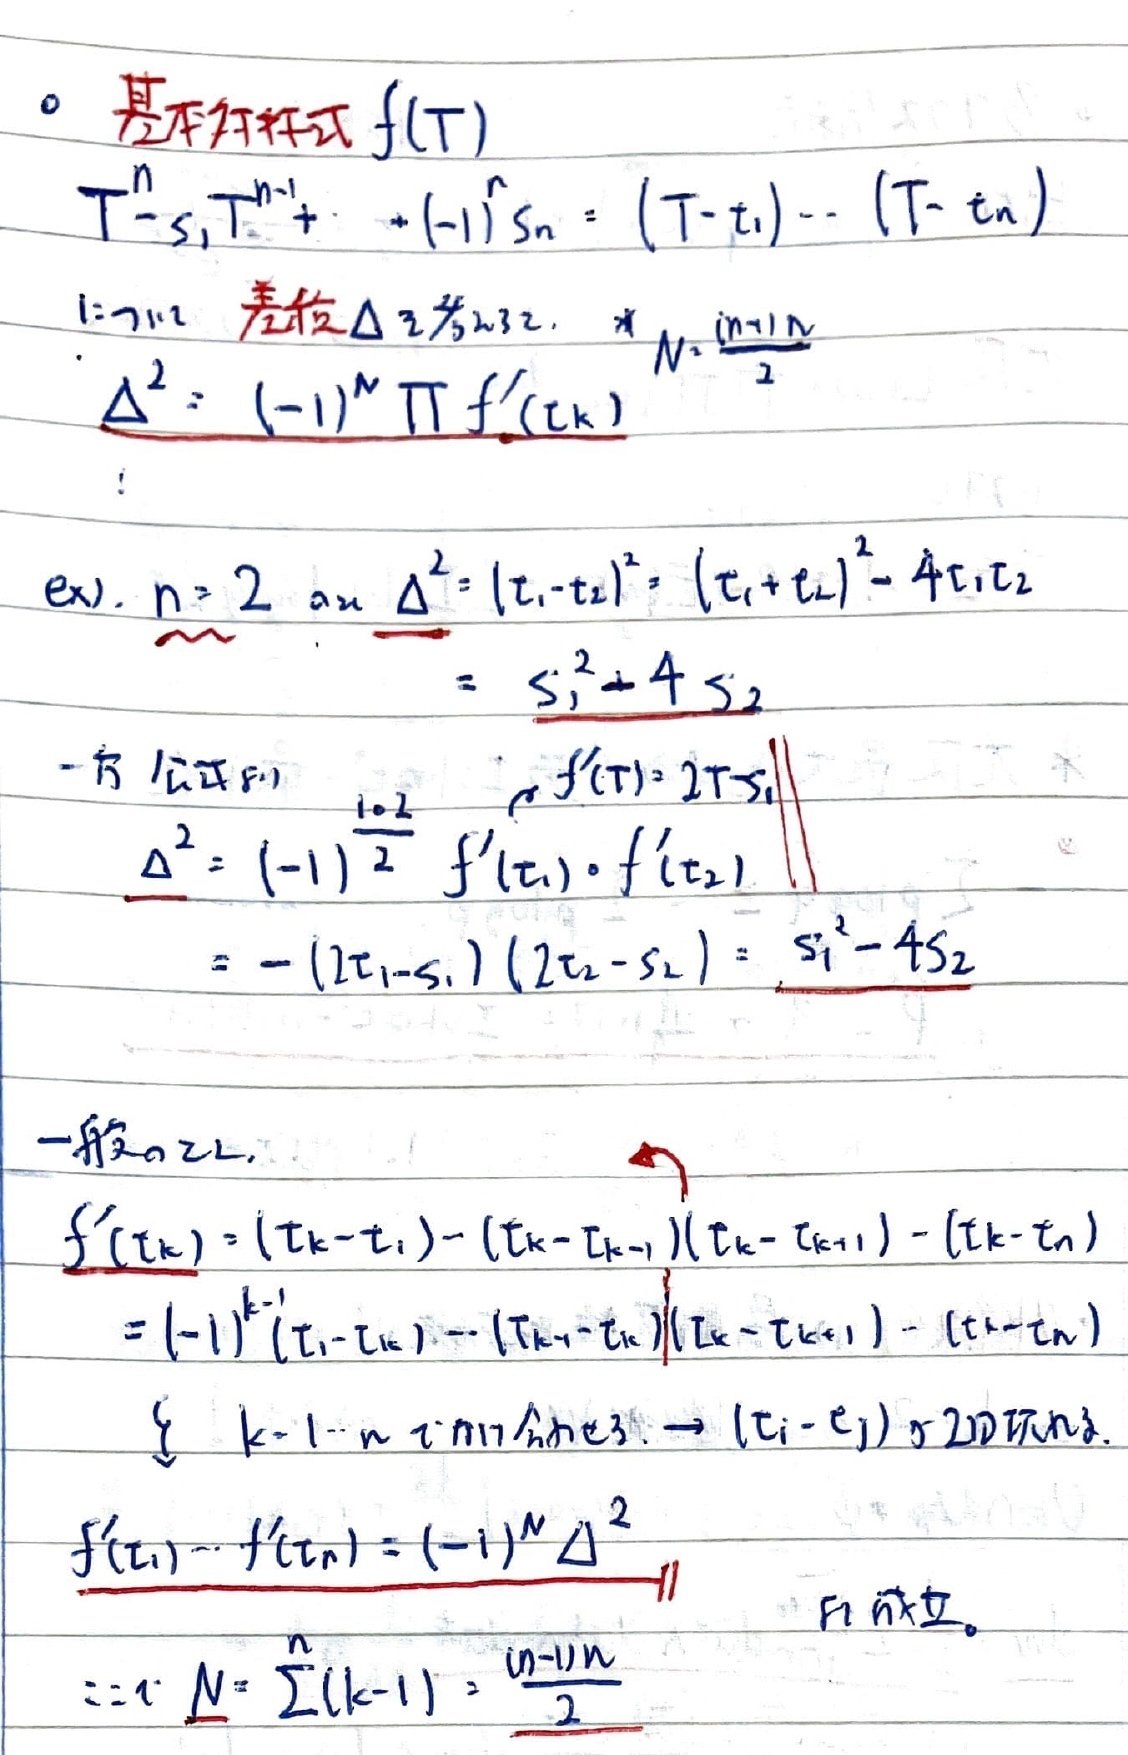 。基本対称式 f(T)
T^n - s₁T^{n-1} + ‥ + (-1)^n sₙ = (T - t₁) ‥ (T - tₙ)
について 差積 Δ を考えると. * N = (n-1)n/2
Δ² = (-1)^N Π f'(t_k)
⋮
ex). n = 2 のとき Δ² = (t₁ - t₂)² = (t₁ + t₂)² - 4t₁t₂
= s₁² - 4s₂
一方 公式より f'(T) = 2T - s₁
Δ² = (-1)^{1·2/2} f'(t₁)・f'(t₂)
= -(2t₁ - s₁)(2t₂ - s₂) = s₁² - 4s₂
一般のとし.
f'(t_k) = (t_k - t₁) ‥ (t_k - t_{k-1})(t_k - t_{k+1}) ‥ (t_k - tₙ)
= (-1)^{k-1}(t₁ - t_k) ‥ (t_{k-1} - t_k)(t_k - t_{k+1}) ‥ (t_k - tₙ)
k = 1 ‥ n でかけ合わせる. → (t_i - t_j) が2回現れる.
f'(t₁) ‥ f'(tₙ) = (-1)^N Δ²
より 成立。
ここで N = Σ^n (k-1) = (n-1)n/2